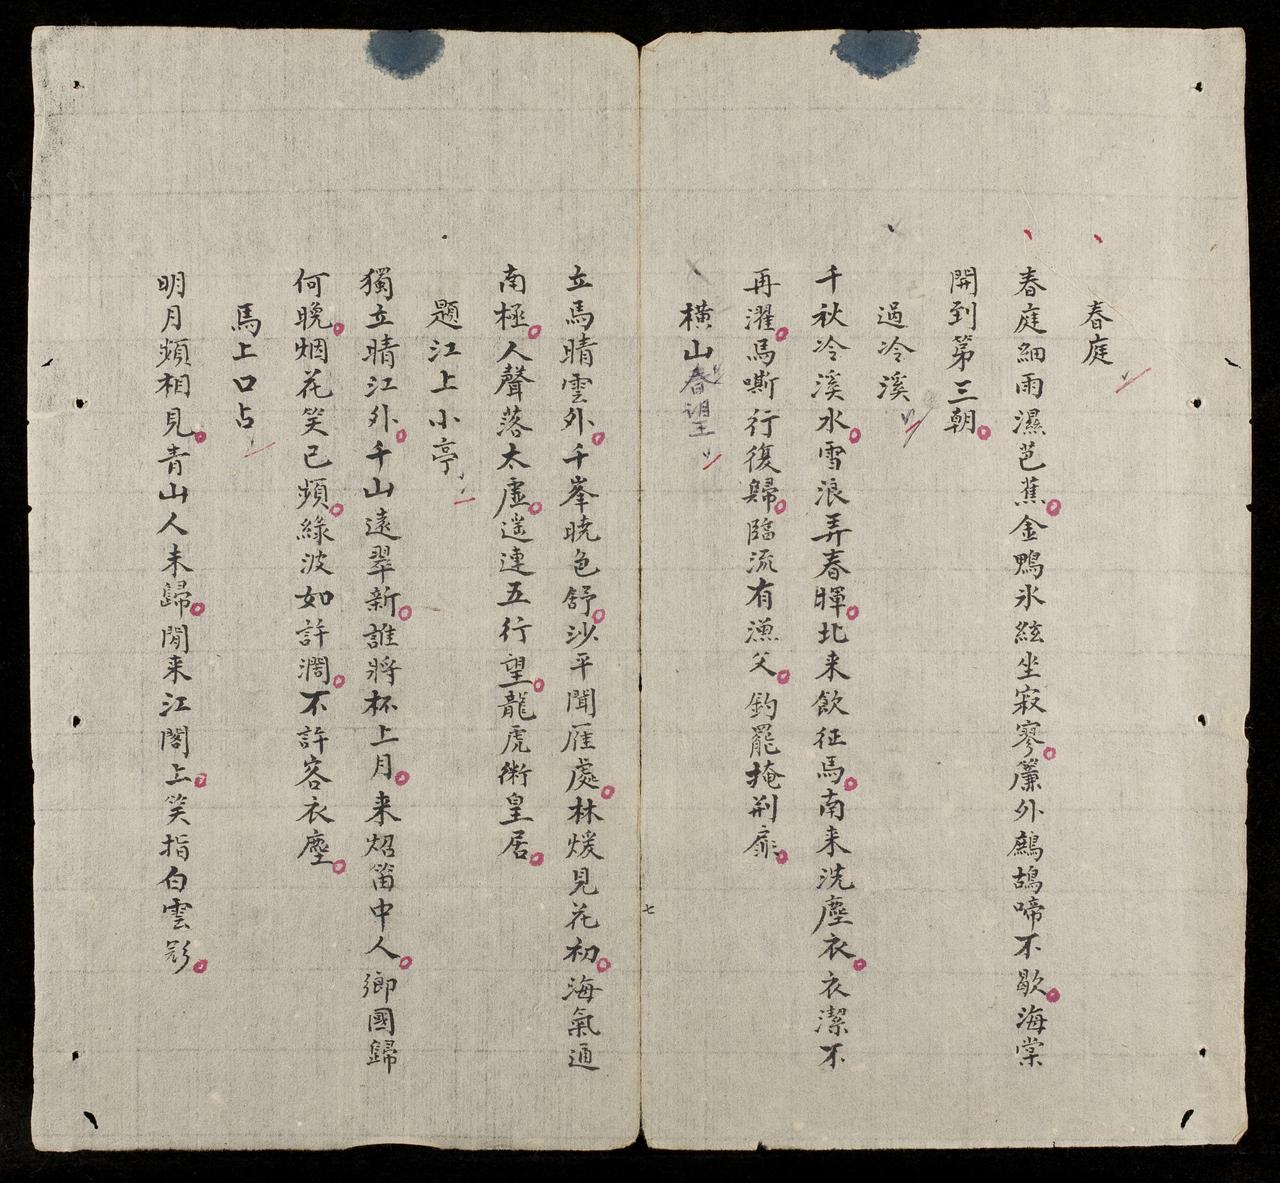 春庭
春庭細雨濕芭蕉金鴨氷絃坐寂寥簾外鷓鴣啼不歇海棠
開到第三朝
過冷溪
千秋冷溪水雪浪弄春暉北来飲征馬南来洗塵衣衣潔不
再濯馬嘶行復歸臨流有漁父釣罷掩荆扉
橫山春望
立馬晴雲外千峯暁色舒沙平聞雁處林煖見花初海氣通
南極人聲落太虛遥連五行望龍虎衛皇居
題江上小亭
獨立晴江外千山遠翠新誰將杯上月来炤笛中人鄉國歸
何晚烟花笑已頻綠波如許濶不許客衣塵
馬上口占
明月頻相見青山人未歸閒来江閣上笑指白雲影
七